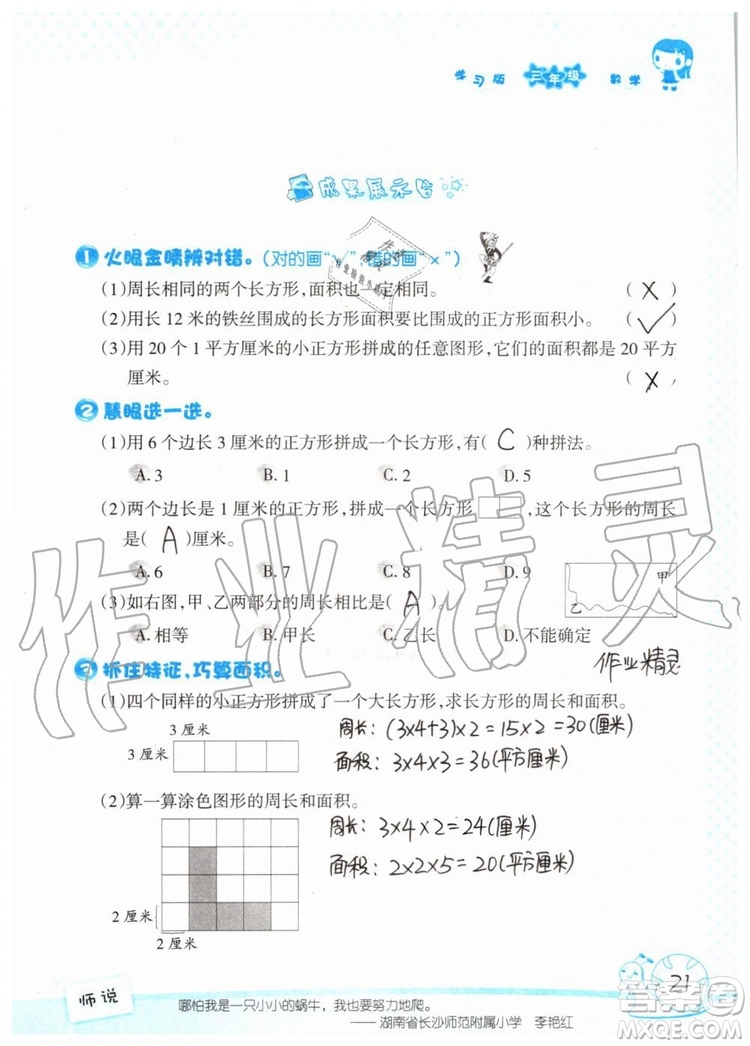 学习版 三年级 数学
成果展示台
1 火眼金睛辨对错。(对的画“√”,错的画“×”)
(1)周长相同的两个长方形,面积也一定相同。 ( X )
(2)用长 12 米的铁丝围成的长方形面积要比围成的正方形面积小。 ( √ )
(3)用 20 个 1 平方厘米的小正方形拼成的任意图形,它们的面积都是 20 平方
厘米。 ( X )
2 慧眼选一选。
(1)用 6 个边长 3 厘米的正方形拼成一个长方形,有( C )种拼法。
A. 3 B. 1 C. 2 D. 5
(2)两个边长是 1 厘米的正方形,拼成一个长方形 ,这个长方形的周长
是( A )厘米。
A. 6 B. 7 C. 8 D. 9
甲
乙
(3)如右图,甲、乙两部分的周长相比是( A )。
A. 相等 B. 甲长 C. 乙长 D. 不能确定
作业精灵
3 抓住特征,巧算面积。
(1)四个同样的小正方形拼成了一个大长方形,求长方形的周长和面积。
3 厘米
3 厘米
周长:(3×4+3)×2=15×2=30(厘米)
面积:3×4×3=36(平方厘米)
(2)算一算涂色图形的周长和面积。
2 厘米
2 厘米
周长:3×4×2=24(厘米)
面积:2×2×5=20(平方厘米)
作业精灵
21
师说
哪怕我是一只小小的蜗牛，我也要努力地爬。
——湖南省长沙师范附属小学 李艳红
答案圈